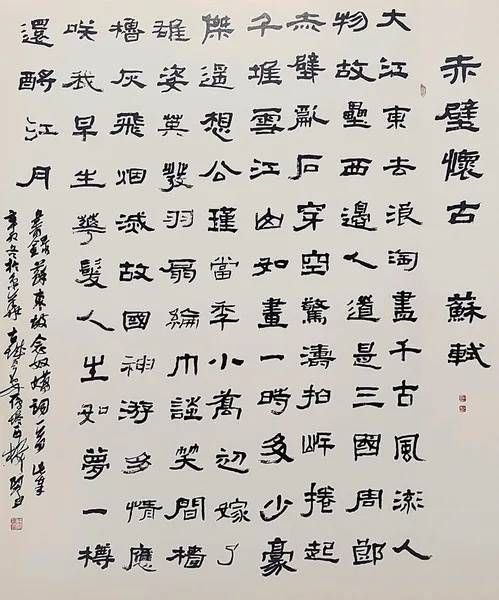 赤壁懷古 蘇軾
大江東去浪淘盡千古風流人
物故壘西邊人道是三國周郎
赤壁亂石穿空驚濤拍岸捲起
千堆雪江山如畫一時多少豪
傑遥想公瑾當年小喬初嫁了
雄姿英發羽扇綸巾談笑間檣
櫓灰飛烟滅故國神游多情應
咲我早生華髮人生如夢一樽
還酹江月
書錄蘇東坡念奴嬌詞一首